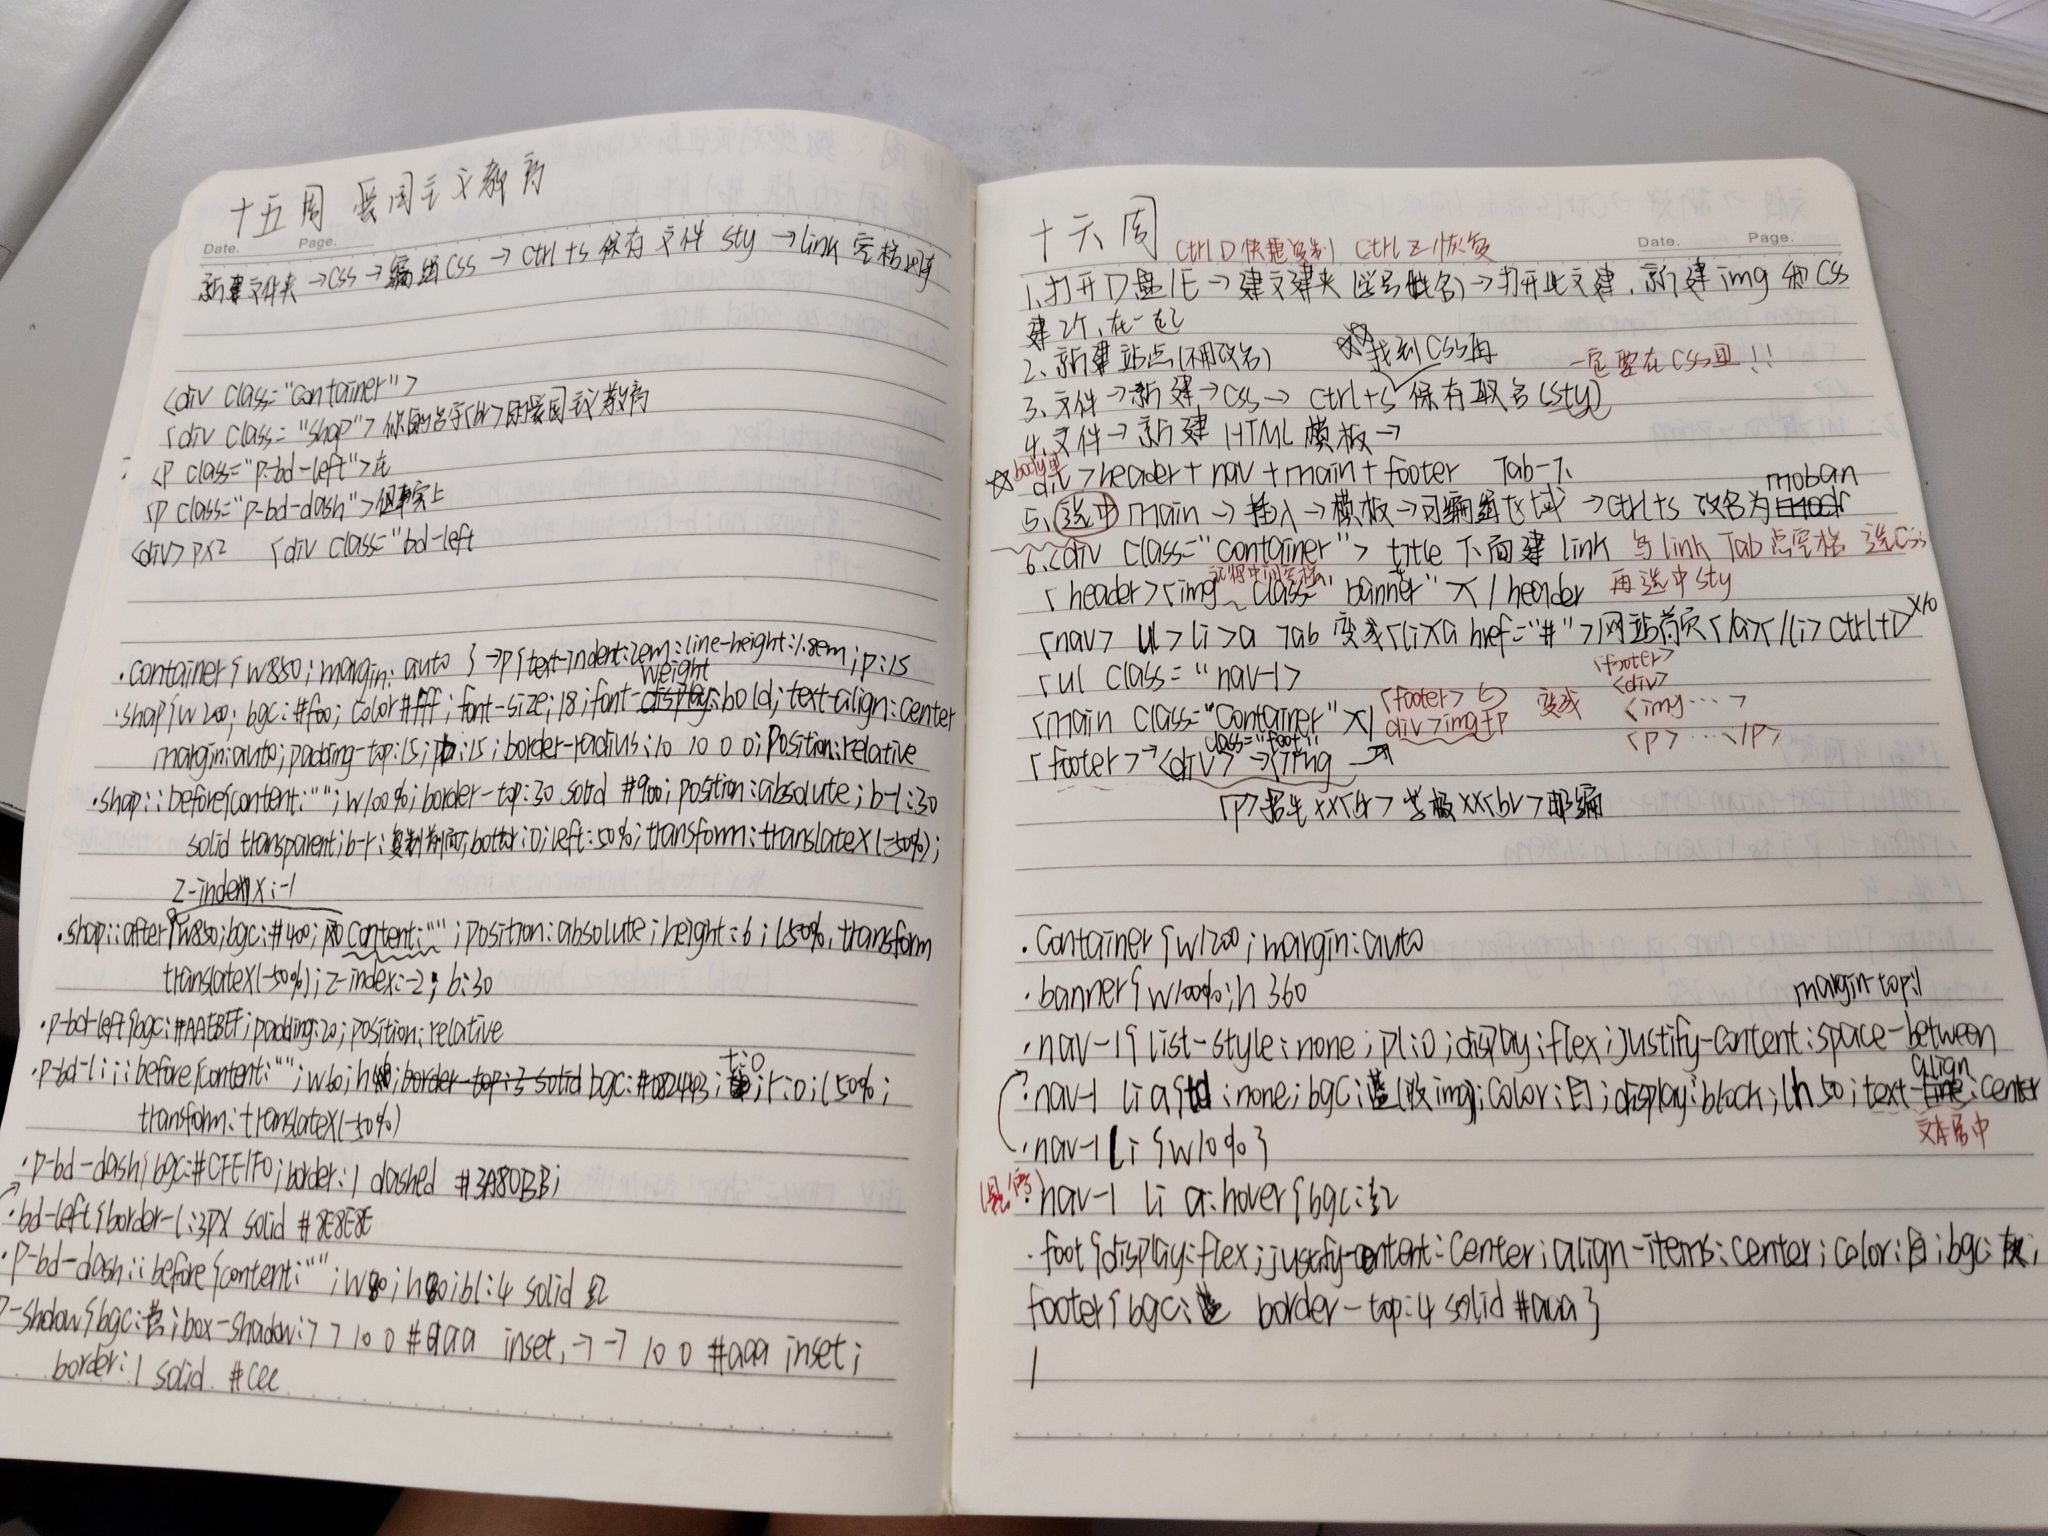 十五周 爱国主义教育
Date. Page.
新建文件夹→CSS→编辑CSS→Ctrl+s 保存文件 sty→link 空格
<div class="container">
<div class="shop">你的名字<br>的爱国主义教育
<p class="p-bd-left">在
<p class="p-bd-dash">但事实上
<div>p×2 <div class="bd-left
.container{w850;margin:auto}→p{text-indent:2em:line-height:1.8em;p:15
weight
.shop{w200;bgc:#f00;color#fff;font-size;18;font-:bold;text-align:center
margin:auto;padding-top:15;pb:15;border-radius:10 10 0 0;position:relative
.shop::before{content:"";w100%;border-top:30 solid #900;position:absolute;b-l:30
solid transparent;b-r:复制前面;bottom:0;left:50%;transform:translatex(-50%);
z-index:-1
.shop::after{w850;bgc:#400;content:"";position:absolute;height:6;l50%,transform
translatex(-50%);z-index:-2;b:30
.p-bd-left{bgc:#AAEBEF;padding:20;position:relative
t:0
.p-bd-l::before{content:"";w60;h;border-top:3 solid bgc:#;l:0;l50%;
transform:translatex(-50%)
.p-bd-dash{bgc:#CFE1F0;border:1 dashed #3A80BB;
.bd-left{border-l:3px solid #8E8E8E
.p-bd-dash::before{content:"";w80;h80;bl:4 solid 红
p-shdow{bgc:;box-shadow:7 7 10 0 #aaa inset,-7 -7 10 0 #aaa inset;
border:1 solid #ccc
十六周
Ctrl D 快捷复制 Ctrl Z 恢复
Date. Page.
1、打开D盘/E→建文建夹(学号姓名)→打开此文建,新建img 和CSS
建2个,在一起
2、新建站点(不用改名) 找到CSS再 一定要在CSS里!!
3、文件→新建→CSS→Ctrl+s 保存取名(sty)
4、文件→新建 HTML 模板→
body里
div>header+nav+main+footer Tab一下
moban
5、选中 main→插入→模板→可编辑区域→ctrl+s 改名为
6、<div class="container"> title 下面建 link 写link Tab点空格 选CSS
记得中间空格
<header><img class="banner"></header 再选中sty
<nav> ul>li>a Tab 变成<li><a href="#">网站首页</a></li> Ctrl+D ×10
<ul class="nav-1>
<footer>
<main class="container"></ <footer> 变成 <div>
div>img+p <img…>
class="foot"
<footer>→<div>→<img <p>…</p>
<p>招生××<br>学校××<br>邮编
.container{w1200;margin:auto
.banner{w100%;h 360
margin-top:1
.nav-1{list-style:none;pl:0;display:flex;justify-content:space-between
align
.nav-1 li a{td:none;bgc:蓝(吸img);color:白;display:block;lh 50;text-line:center
文本居中
.nav-1 li{w10%}
.nav-1 li a:hover{bgc:红
.foot{display:flex;justify-content:center;align-items:center;color:白;bgc:灰;
footer{bgc: border-top:4 solid #aaa}